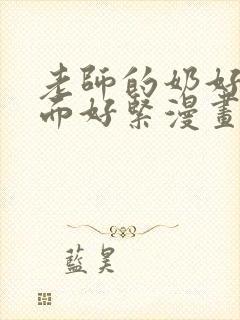 老師的奶好
而好緊漫畫
藍昊